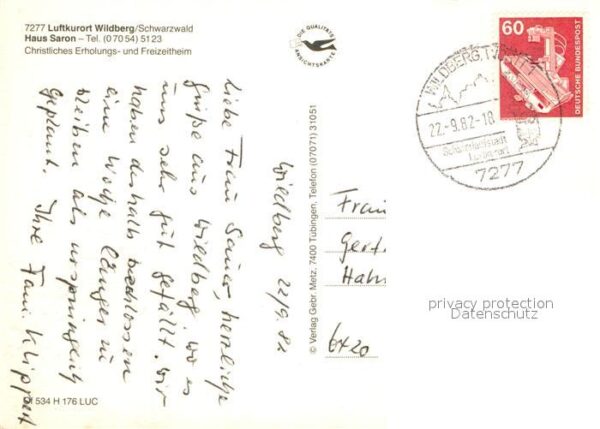 7277 Luftkurort Wildberg/Schwarzwald
Haus Saron – Tel. (0 70 54) 51 23
Christliches Erholungs- und Freizeitheim
DIE QUALITÄTS
ANSICHTSKARTE
60
DEUTSCHE BUNDESPOST
WILDBERG,
22.-9.82-18
Schäferlaufstadt
Luftkurort
7277
Wildberg 22/9. 82
Liebe Frau Sauer, herzliche
Grüße aus Wildberg, wo es
uns sehr gut gefällt. Wir
haben deshalb beschlossen
eine Woche länger zu
bleiben als ursprünglich
geplant. Ihre Fam. Klippert
© Verlag Gebr. Metz, 7400 Tübingen, Telefon (07071) 31051
Frau
Gert
Hahn
6420
privacy protection
Datenschutz
534 H 176 LUC